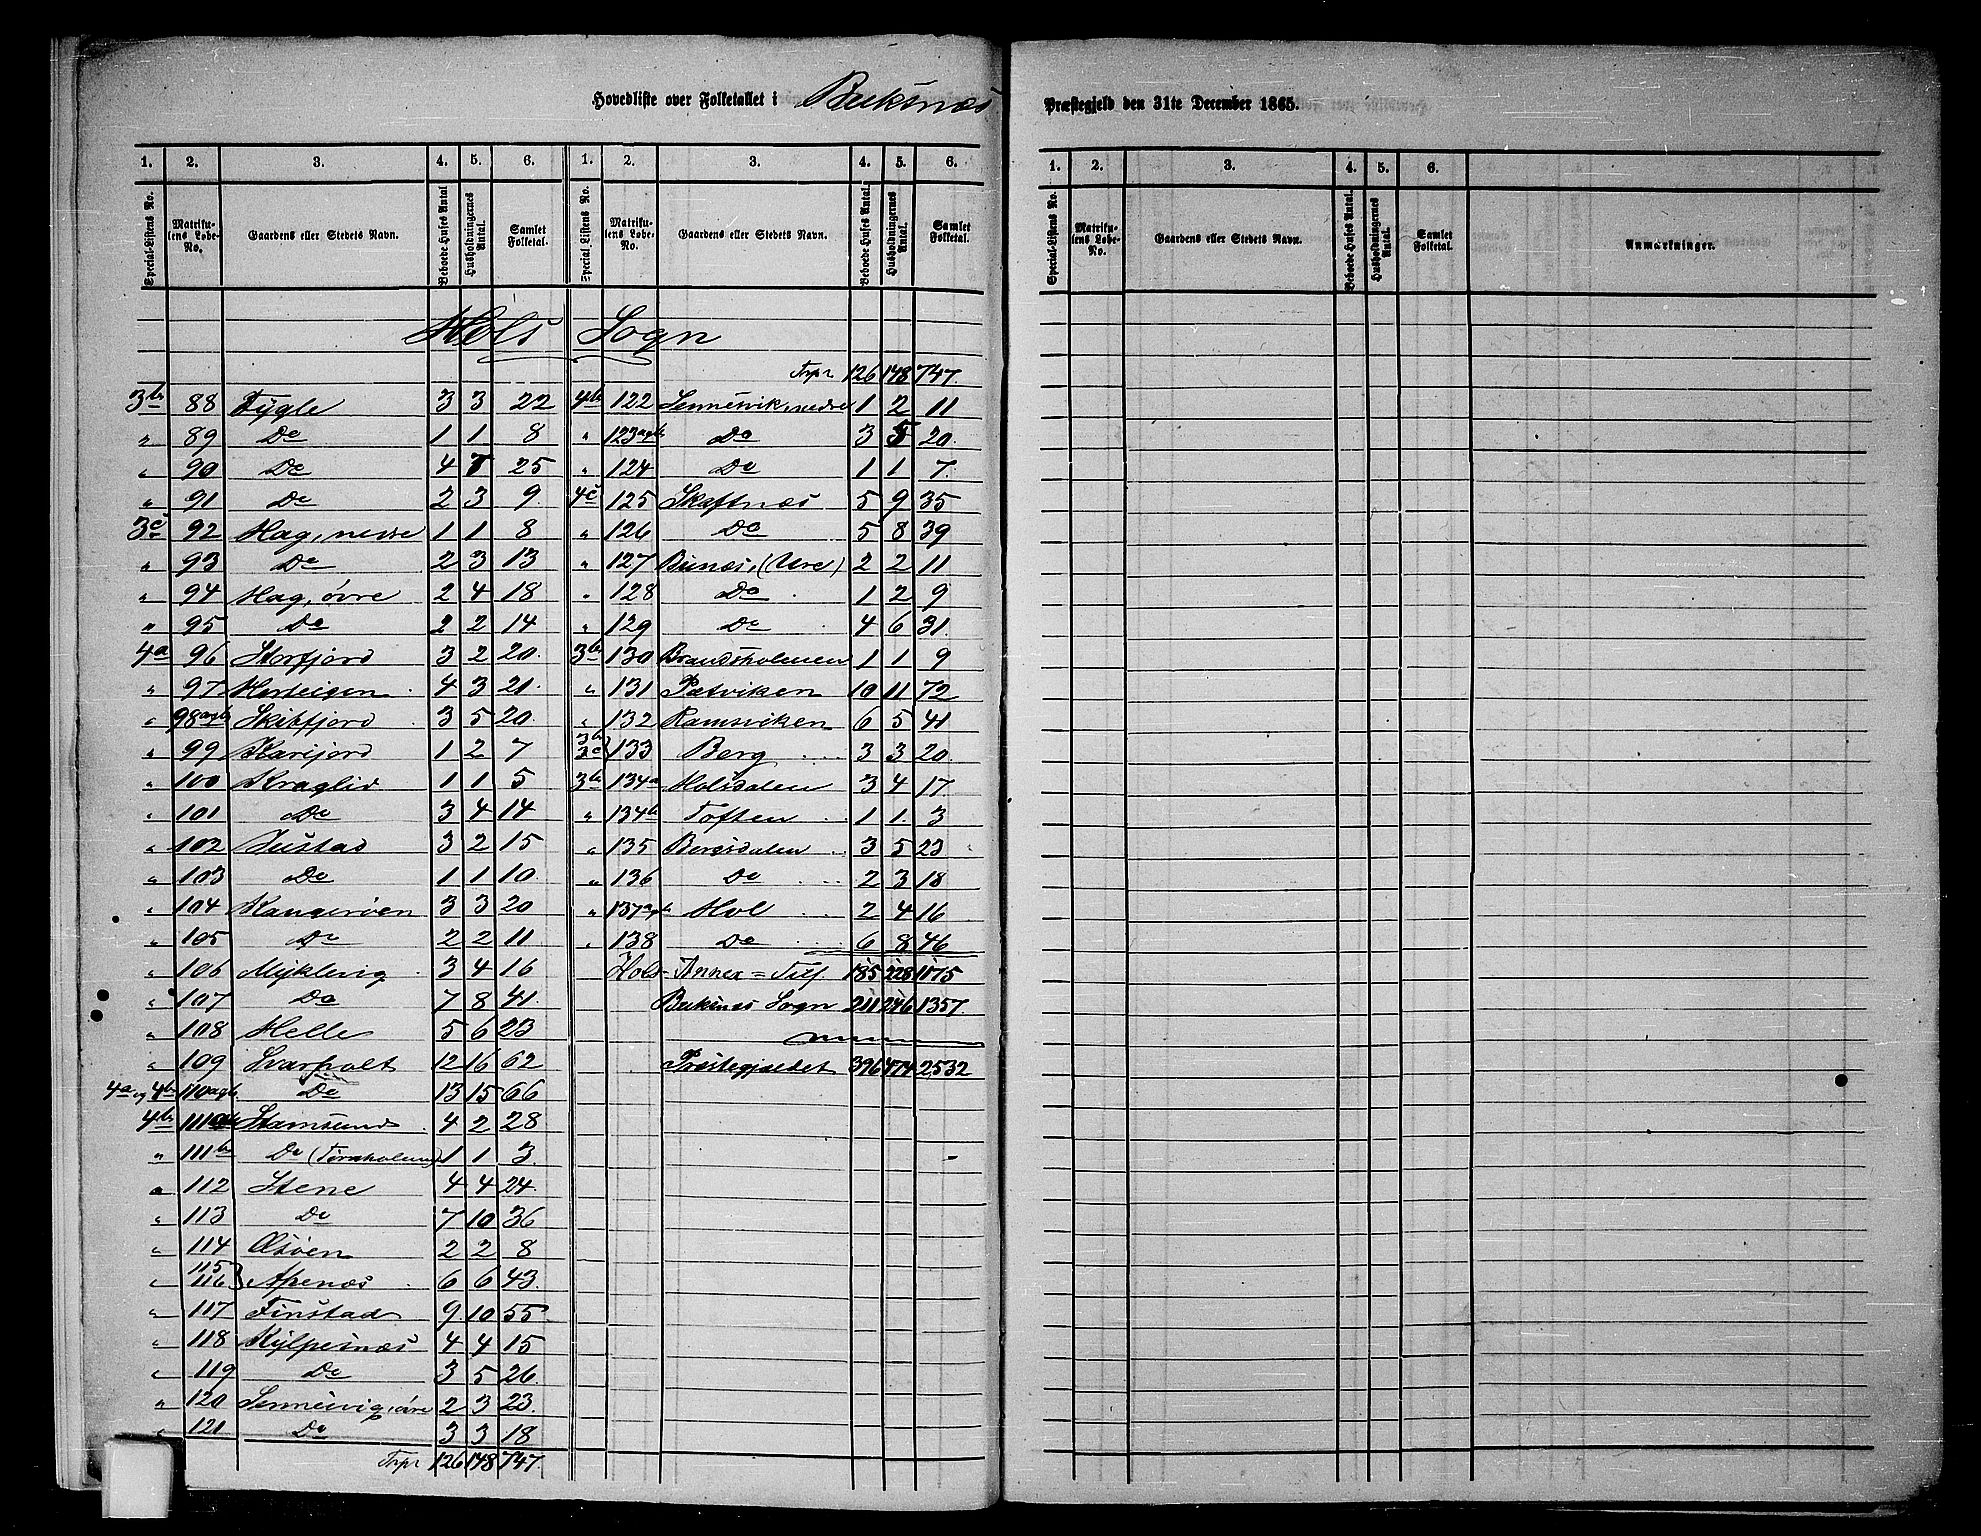 Hovedliste over Folketallet i Buksnæs Præstegjeld den 31te December 1865.
1. 2. 3. 4. 5. 6. 1. 2. 3. 4. 5. 6.
Special-Listens No. Matrikulens Løbe-No. Gaardens eller Stedets Navn. Beboede Huses Antal Husholdningernes Antal. Samlet Folketal. Special-Listens No. Matrikulens Løbe-No. Gaardens eller Stedets Navn. Beboede Huses Antal. Husholdningernes Antal. Samlet Folketal.
Hols Sogn
3b 88 Fygle 3 3 22
" 89 Do 1 1 8
" 90 Do 4 25
" 91 Do 2 3 9.
3c 92 Hag, nedre 1 1 8
" 93 Do 2 3 13
" 94 Hag, øvre 2 4 18
" 95 Do 2 2 14
4a 96 Storfjord 3 2 20.
" 97 Horteigen 4 3 21.
" 98a&b Skibfjord 3 5 20.
" 99 Harfjord 1 2 7
" 100 Kraglid 1 1 5
" 101 Do 3 4 14
" 102 Justad 3 2 15
" 103 Do 1 1 10.
" 104 Kangerøen 3 3 20
" 105 Do 2 2 11
" 106 Myklevig 3 4 16
" 107 Do 7 8 41.
" 108 Helle 5 6 23
" 109 Svarholt 12 16 62
4a og 4b 110a&b Do 13 15 66
4b 111a Stamsund 4 2 28
" 111b Do (Tornholmen) 1 1 3.
" 112 Stene 4 4 24.
" 113 Do 7 10 36
" 114 Æsøen 2 2 8
" 115 116} Apenæs 6 6 43.
" 117 Finstad 9. 10 55
" 118 Kylpesnæs 4 4 15
" 119 Do 3 5 26.
" 120 Sennesvig, øvre 2 3 23.
" 121 Do 3 3 18
Trpr 126 148 747.
Trpr 126 148 747.
4b 122 Sennesvik, nedre 1 2 11
" 123a&b Do 3 5 20.
" 124 Do 1 1 7.
4c 125 Skaftnæs 5 9 35
" 126 Do 5 8 39
" 127 Bunæs, (Ure) 2 2 11
" 128 Do 1 2 9
" 129 Do 4 6 31.
3b 130 Brandsholmen 1 1 9
" 131 Pætviken 10 11 72
" 132 Ramsviken 6 5 41
3b 3c} 133 Berg 3 3 20.
3b 134a Holsdalen 3 4 17
" 134b Toften 1 1. 3
" 135 Borgsdalen 3 5 23
" 136 Do 2 3 18
" 137a&b Hol 2 4 16
" 138 Do 6 8 46
Hols-Annex= Tilf 185 228 1175
Buksnæs Sogn 211 246 1357.
Præstegjældet 396 474 2532
1. 2. 3. 4. 5. 6.
Special-Listens No. Matrikulens Løbe-No. Gaardens eller Stedets Navn. Beboede Huses Antal. Husholdningernes Antal. Samlet Folketal. Anmærkninger.